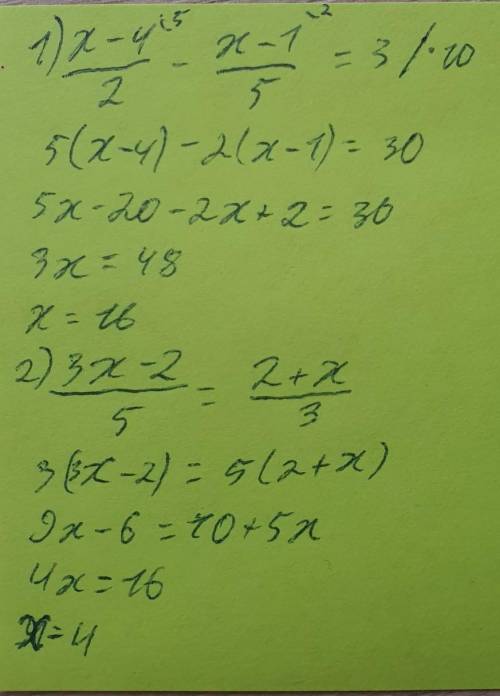 1) (x-4)/2 ·5 - (x-1)/5 ·2 = 3 /·10
5(x-4) - 2(x-1) = 30
5x-20-2x+2=30
3x = 48
x = 16
2) (3x-2)/5 = (2+x)/3
3(3x-2) = 5(2+x)
9x-6=10+5x
4x=16
x=4